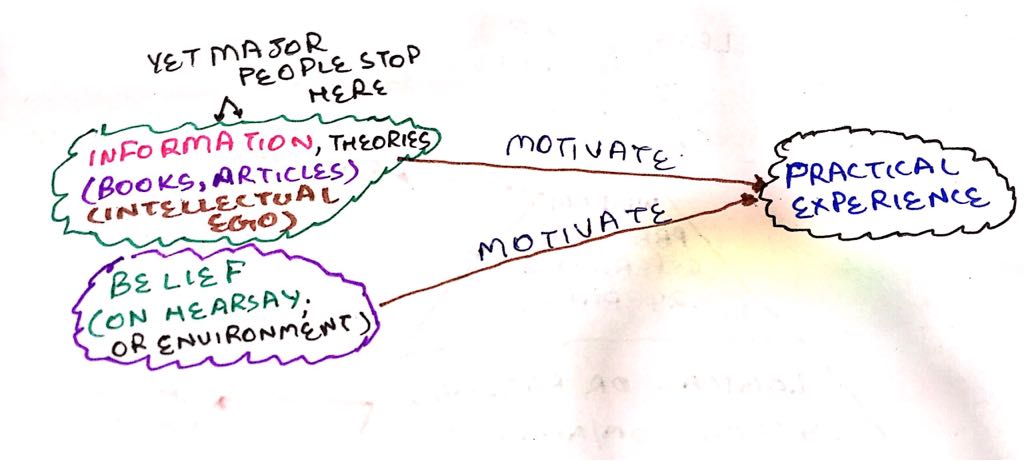 YET MAJOR
PEOPLE STOP
HERE
INFORMATION, THEORIES
(BOOKS, ARTICLES)
(INTELLECTUAL
EGO)
BELIEF
(ON HEARSAY,
OR ENVIRONMENT)
MOTIVATE
MOTIVATE
PRACTICAL
EXPERIENCE